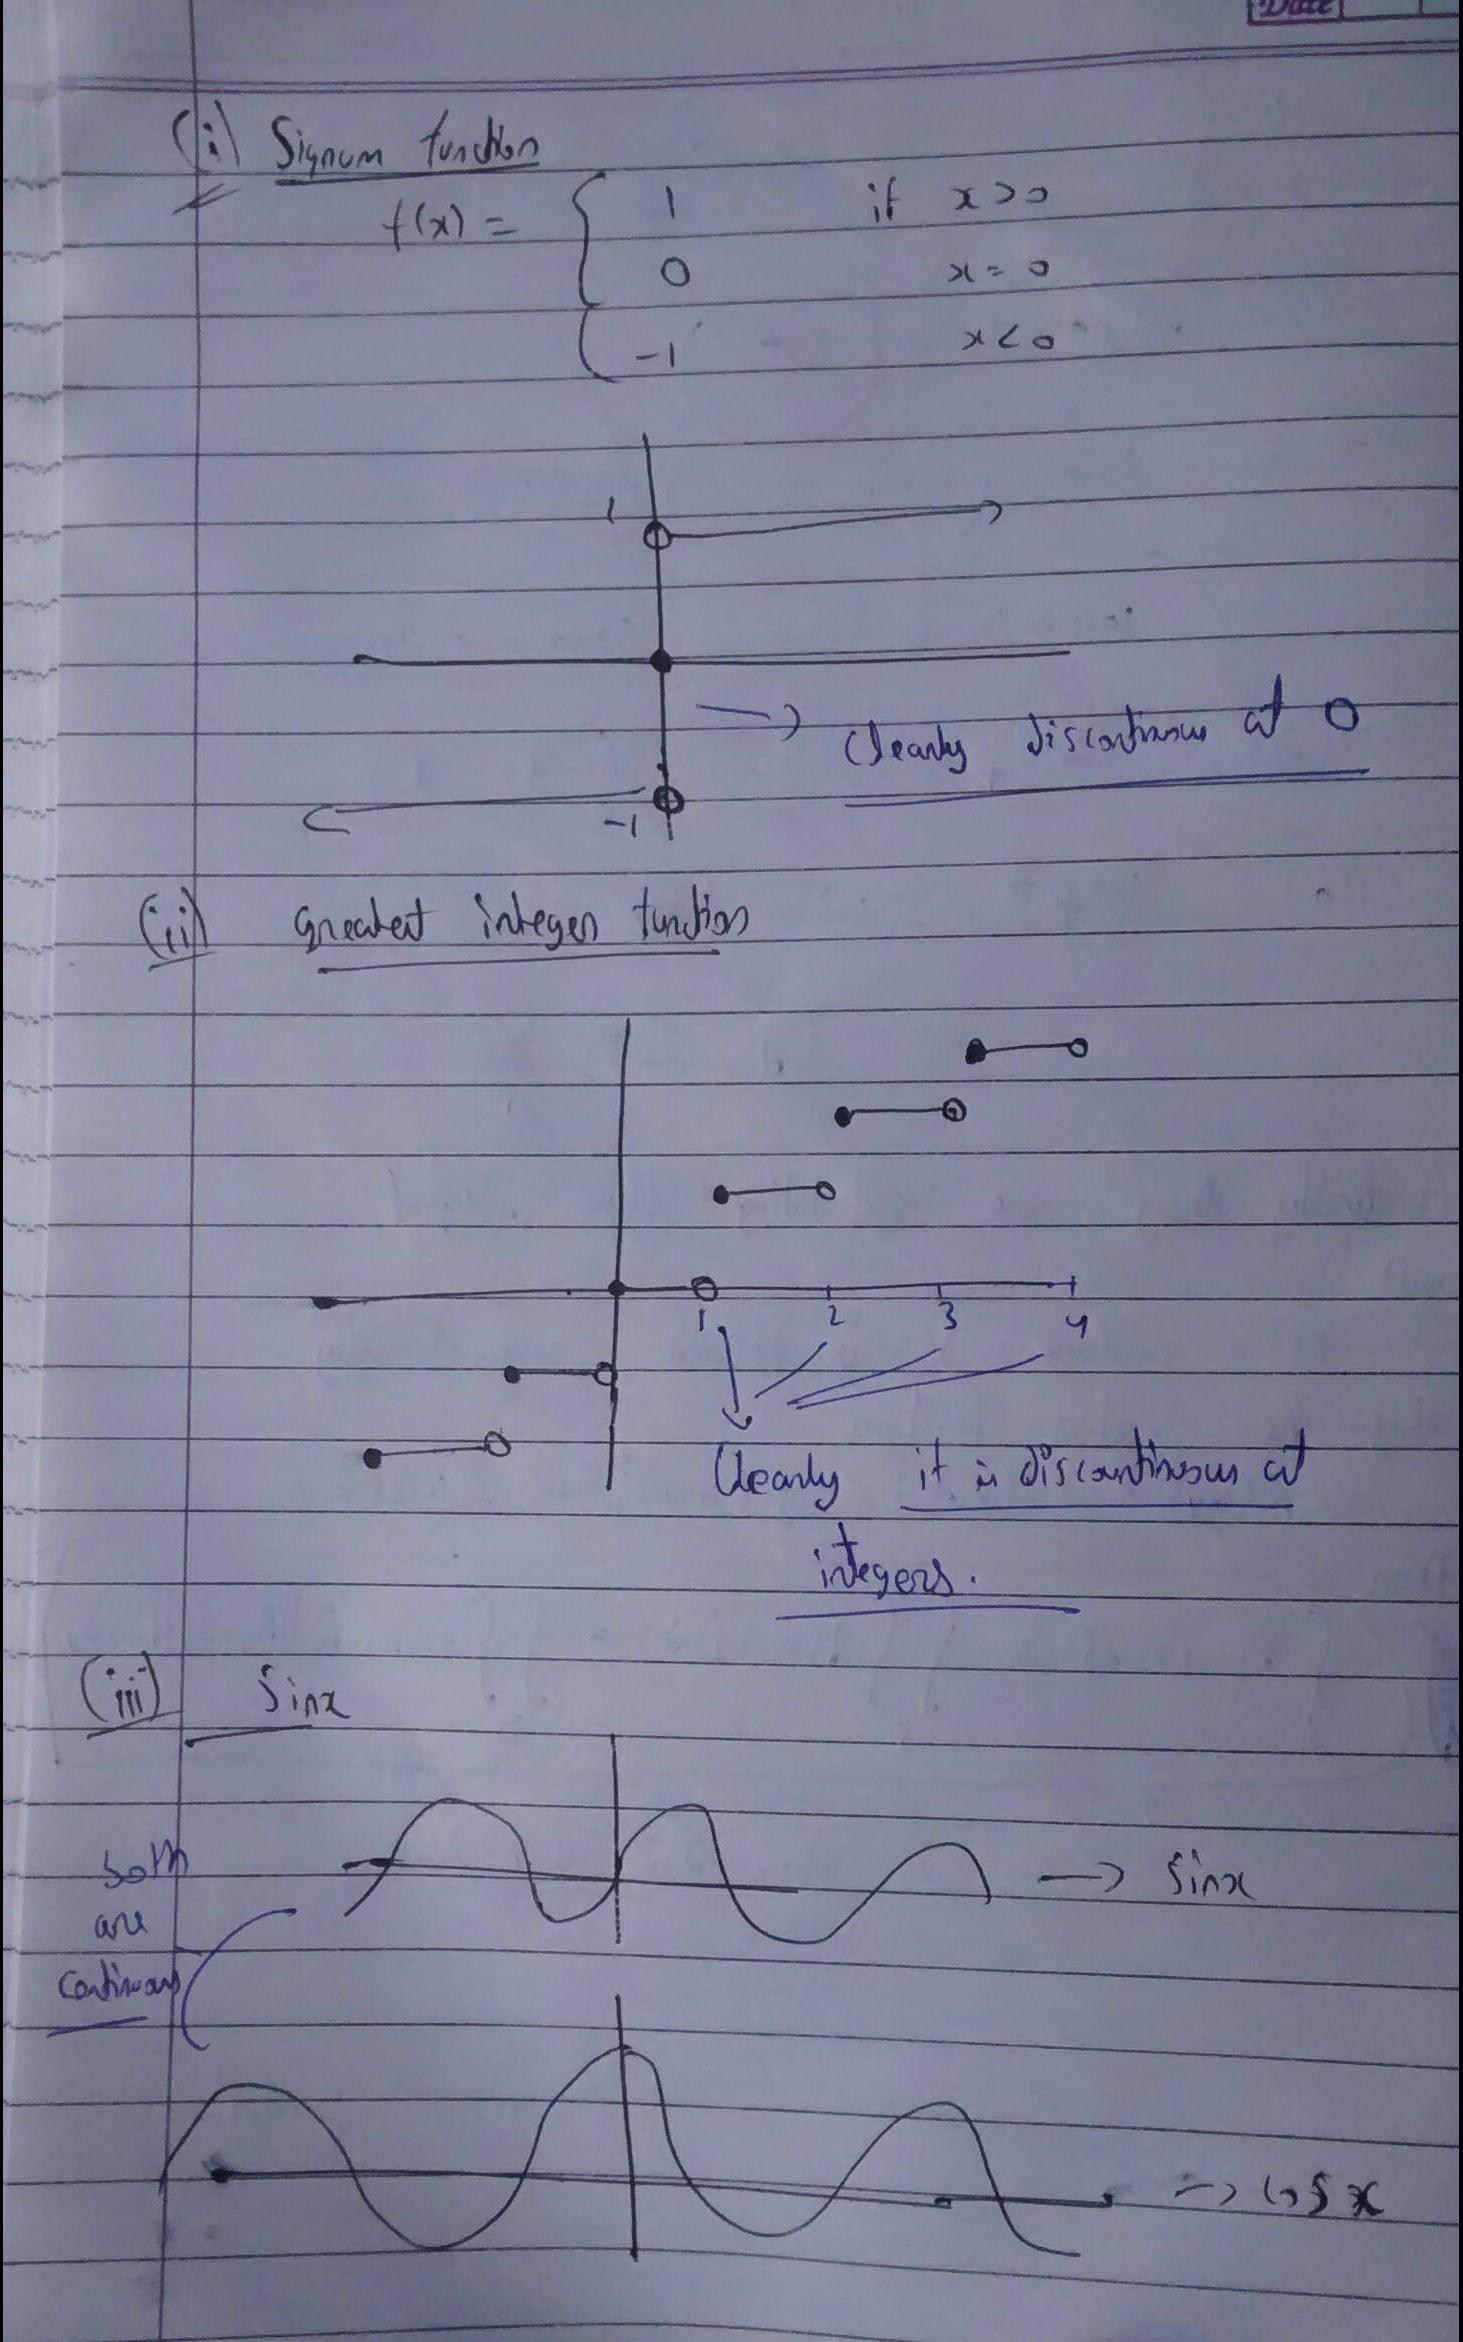 Date
(i) Signum function
f(x) = { 1 if x>0
0 x=0
-1 x<0
1
→ Clearly discontinuous at 0
-1
(ii) Greatest integer function
1 2 3 4
Clearly it is discountinuous at
integers.
(iii) Sinx
→ Sinx
both
are
Continuous
→ Cosx